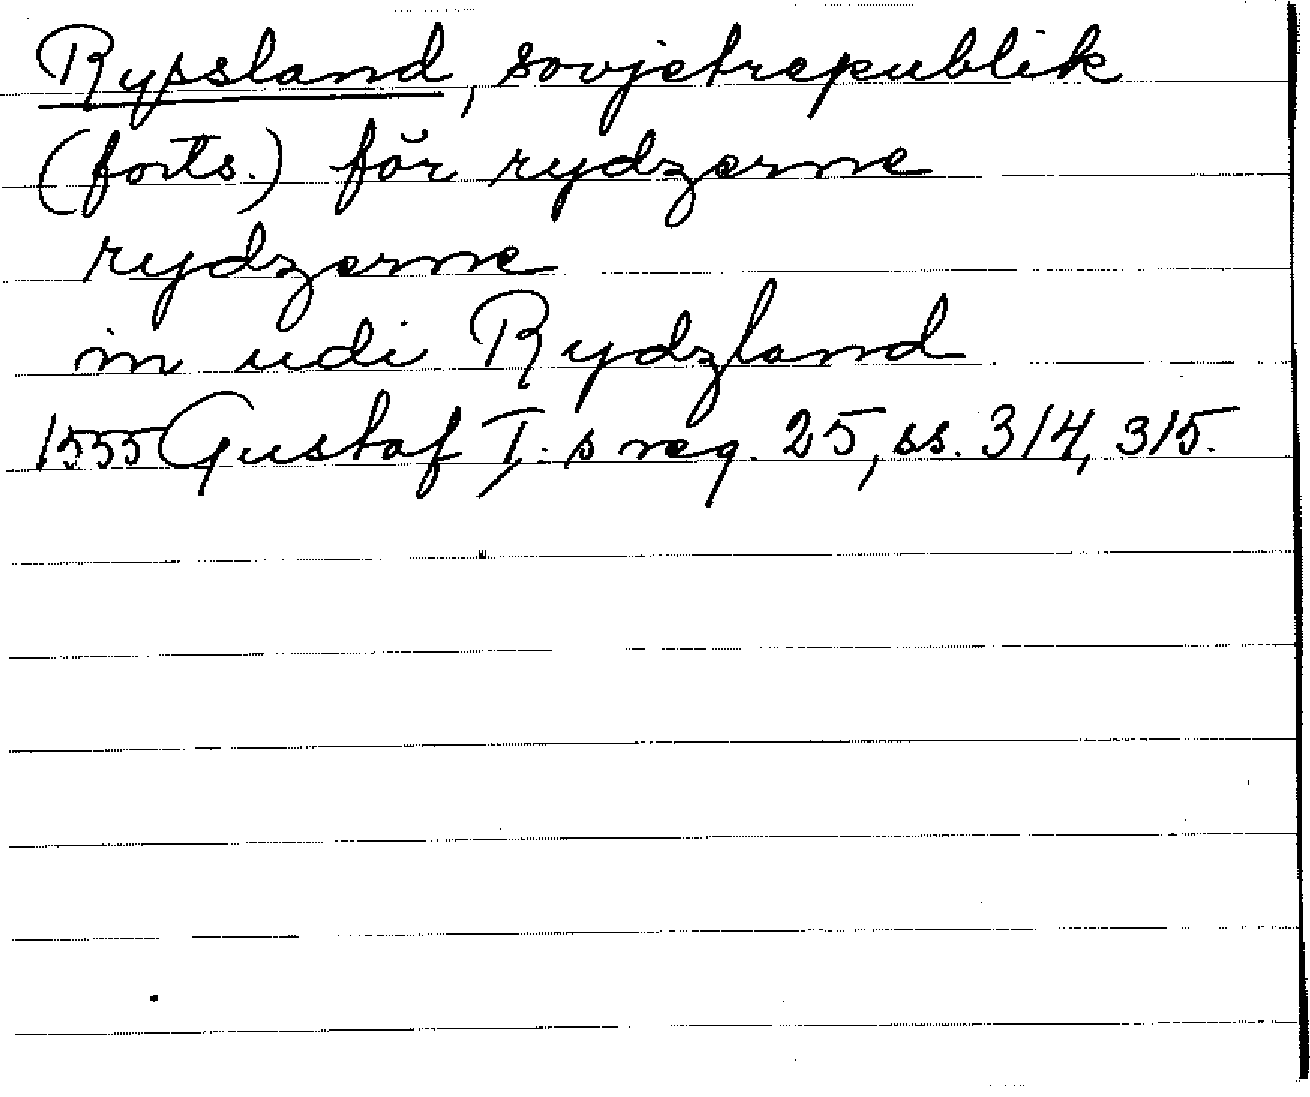 Ryssland, sovjetrepublik
(forts.) för rydzerne
rydzerne
in udi Rydzland
1555 Gustaf I:s reg. 25, ss. 314, 315.